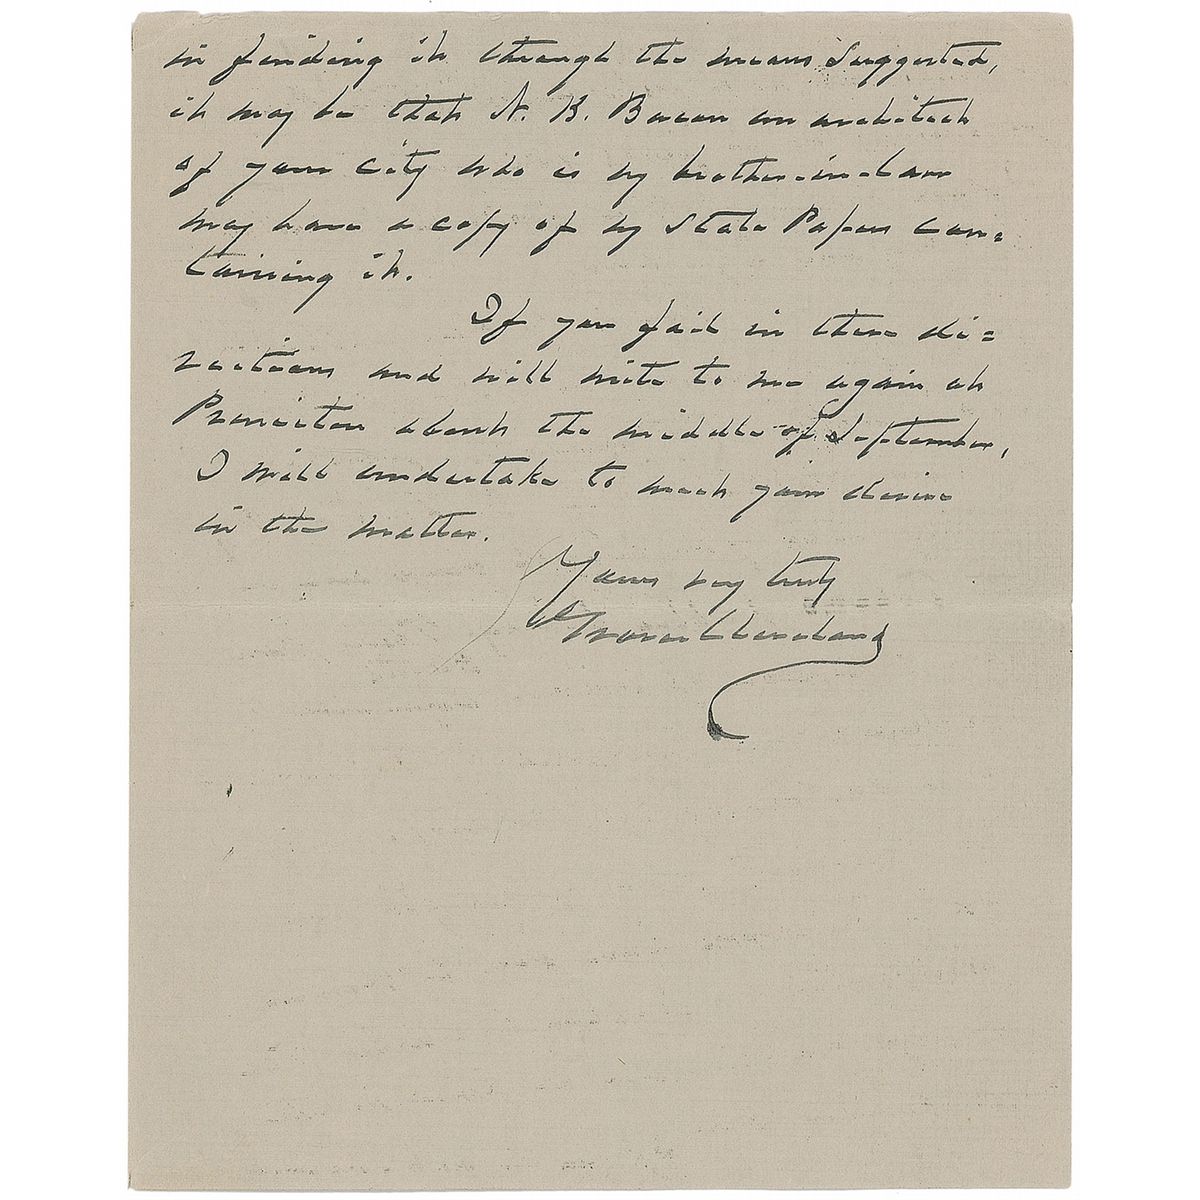 in finding it through the means suggested,
it may be that N. B. Bacon an architect
of your city who is my brother-in-law
may have a copy of my State Papers con=
taining it.
If you fail in these di=
rections and will write to me again at
Princeton about the middle of September,
I will undertake to meet your desire
in the matter.
Yours very truly
Grover Cleveland